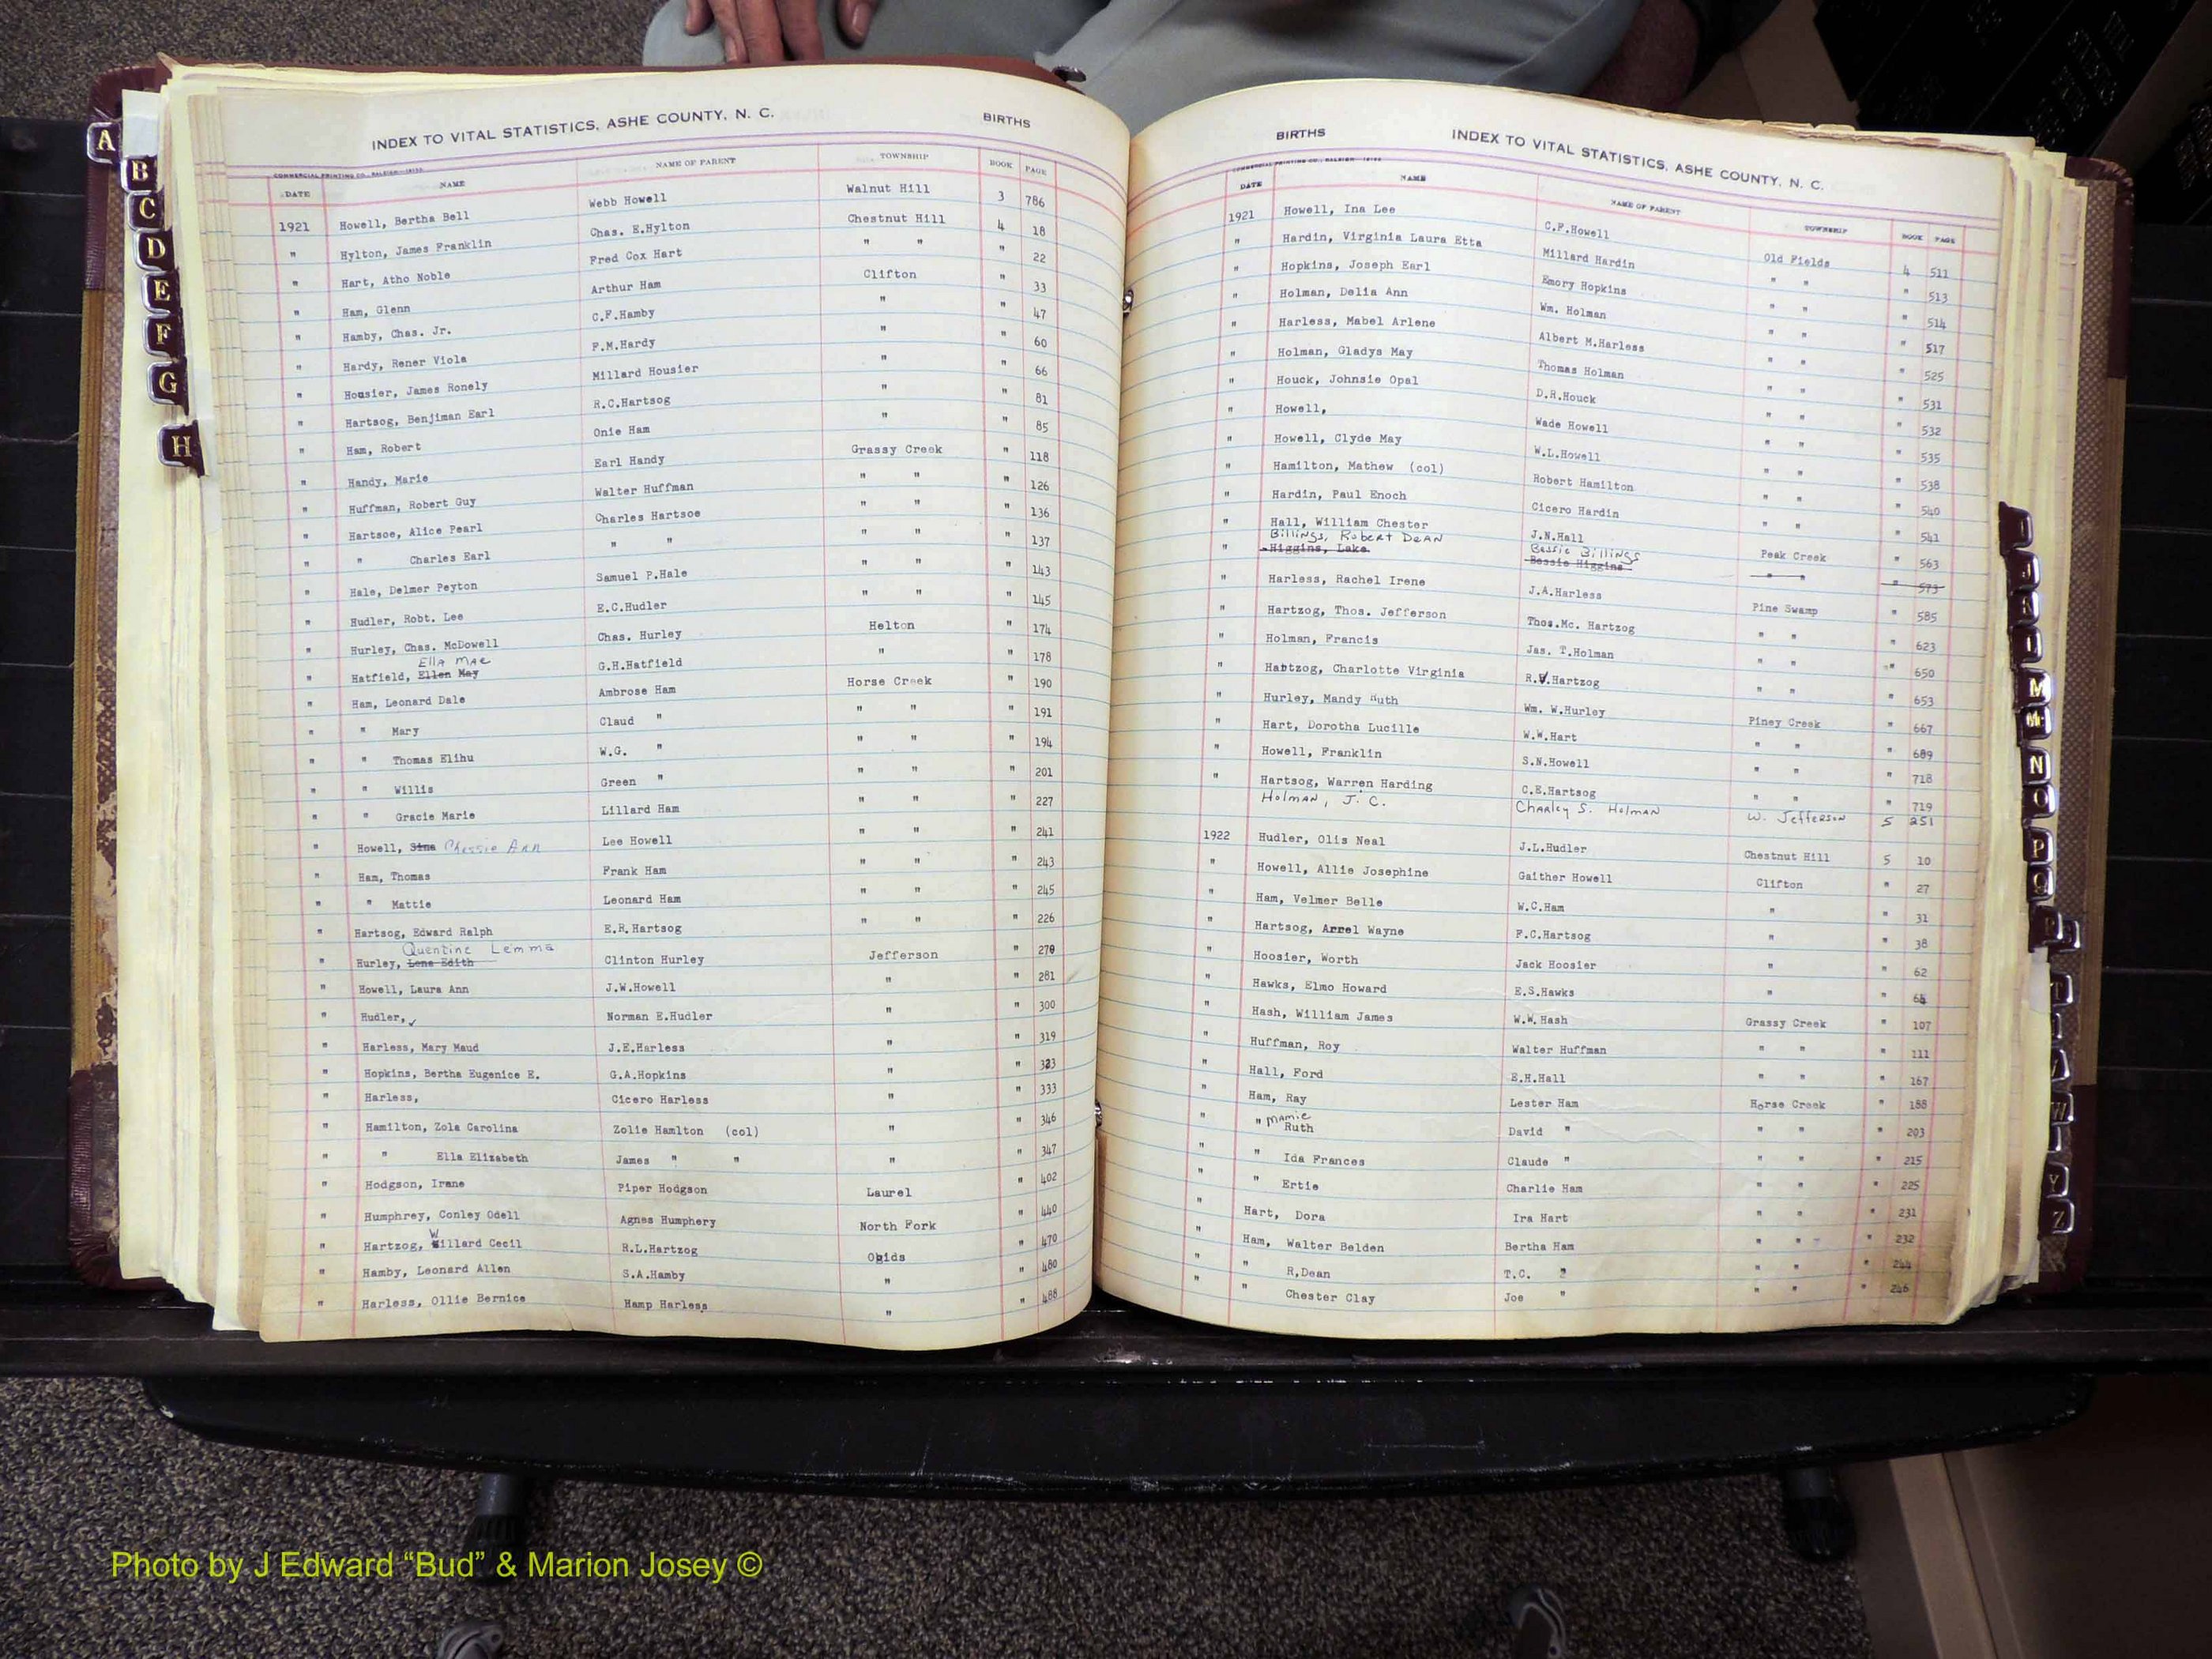 INDEX TO VITAL STATISTICS, ASHE COUNTY, N. C. BIRTHS
COMMERCIAL PRINTING CO., RALEIGH
DATE NAME NAME OF PARENT TOWNSHIP BOOK PAGE
1921 Howell, Bertha Bell Webb Howell Walnut Hill 3 786
" Hylton, James Franklin Chas. E.Hylton Chestnut Hill 4 18
" Hart, Atho Noble Fred Cox Hart " " " 22
" Ham, Glenn Arthur Ham Clifton " 33
" Hamby, Chas. Jr. C.F.Hamby " " 47
" Hardy, Rener Viola F.M.Hardy " " 60
" Housier, James Ronely Millard Housier " " 66
" Hartsog, Benjiman Earl R.C.Hartsog " " 81
" Ham, Robert Onie Ham " " 85
" Handy, Marie Earl Handy Grassy Creek " 118
" Huffman, Robert Guy Walter Huffman " " " 126
" Hartsoe, Alice Pearl Charles Hartsoe " " " 136
" " Charles Earl " " " " " 137
" Hale, Delmer Peyton Samuel P.Hale " " " 143
" Hudler, Robt. Lee E.C.Hudler " " " 145
" Hurley, Chas. McDowell Chas. Hurley Helton " 174
Ella Mae
" Hatfield, Ellen May G.H.Hatfield " " 178
" Ham, Leonard Dale Ambrose Ham Horse Creek " 190
" " Mary Claud " " " " 191
" " Thomas Elihu W.G. " " " " 194
" " Willis Green " " " " 201
" " Gracie Marie Lillard Ham " " " 227
" Howell, Sina Chessie Ann Lee Howell " " " 241
" Ham, Thomas Frank Ham " " " 243
" " Mattie Leonard Ham " " " 245
" Hartsog, Edward Ralph E.R.Hartsog " " " 226
Quentine Lemma
" Hurley, Lone Edith Clinton Hurley Jefferson " 270
" Howell, Laura Ann J.W.Howell " " 281
" Hudler, Norman E.Hudler " " 300
" Harless, Mary Maud J.E.Harless " " 319
" Hopkins, Bertha Eugenice E. G.A.Hopkins " " 323
" Harless, Cicero Harless " " 333
" Hamilton, Zola Carolina Zolie Hamlton (col) " " 346
" " Ella Elizabeth James " " " " 347
" Hodgson, Irane Piper Hodgson Laurel " 402
" Humphrey, Conley Odell Agnes Humphery North Fork " 440
" Hartzog, Willard Cecil R.L.Hartzog Obids " 470
" Hamby, Leonard Allen S.A.Hamby " " 480
" Harless, Ollie Bernice Hamp Harless " " 488
BIRTHS INDEX TO VITAL STATISTICS, ASHE COUNTY, N. C.
COMMERCIAL PRINTING CO., RALEIGH
DATE NAME NAME OF PARENT TOWNSHIP BOOK PAGE
1921 Howell, Ina Lee C.F.Howell Old Fields 4 511
" Hardin, Virginia Laura Etta Millard Hardin " " " 513
" Hopkins, Joseph Earl Emory Hopkins " " " 514
" Holman, Delia Ann Wm. Holman " " " 517
" Harless, Mabel Arlene Albert M.Harless " " " 525
" Holman, Gladys May Thomas Holman " " " 531
" Houck, Johnsie Opal D.R.Houck " " " 532
" Howell, Wade Howell " " " 535
" Howell, Clyde May W.L.Howell " " " 538
" Hamilton, Mathew (col) Robert Hamilton " " " 540
" Hardin, Paul Enoch Cicero Hardin " " " 541
" Hall, William Chester J.N.Hall Peak Creek " 563
Billings, Robert Dean Bessie Billings
" Higgins, Lake Bessie Higgins " " " 573
" Harless, Rachel Irene J.A.Harless Pine Swamp " 585
" Hartzog, Thos. Jefferson Thos.Mc. Hartzog " " " 623
" Holman, Francis Jas. T.Holman " " " 650
" Hartzog, Charlotte Virginia R.V.Hartzog " " " 653
" Hurley, Mandy Ruth Wm. W.Hurley Piney Creek " 667
" Hart, Dorotha Lucille W.W.Hart " " " 689
" Howell, Franklin S.N.Howell " " " 718
" Hartsog, Warren Harding C.E.Hartsog " " " 719
Holman, J. C. Charley S. Holman W. Jefferson 5 251
1922 Hudler, Olis Neal J.L.Hudler Chestnut Hill 5 10
" Howell, Allie Josephine Gaither Howell Clifton " 27
" Ham, Velmer Belle W.C.Ham " " 31
" Hartsog, Arrel Wayne F.C.Hartsog " " 38
" Hoosier, Worth Jack Hoosier " " 62
" Hawks, Elmo Howard E.S.Hawks " "
" Hash, William James W.W.Hash Grassy Creek " 107
" Huffman, Roy Walter Huffman " " " 111
" Hall, Ford E.H.Hall " " " 167
" Ham, Ray Lester Ham Horse Creek " 188
" " Mamie Ruth David " " " " 203
" " Ida Frances Claude " " " " 215
" " Ertie Charlie Ham " " " 225
" Hart, Dora Ira Hart " " " 231
" Ham, Walter Belden Bertha Ham " " " 232
" " R.Dean T.C. " " " " 244
" " Chester Clay Joe " " " " 246
A
B
C
D
E
F
G
H
M
N
O
P
Q
T
W
Y
Z
Photo by J Edward “Bud” & Marion Josey ©